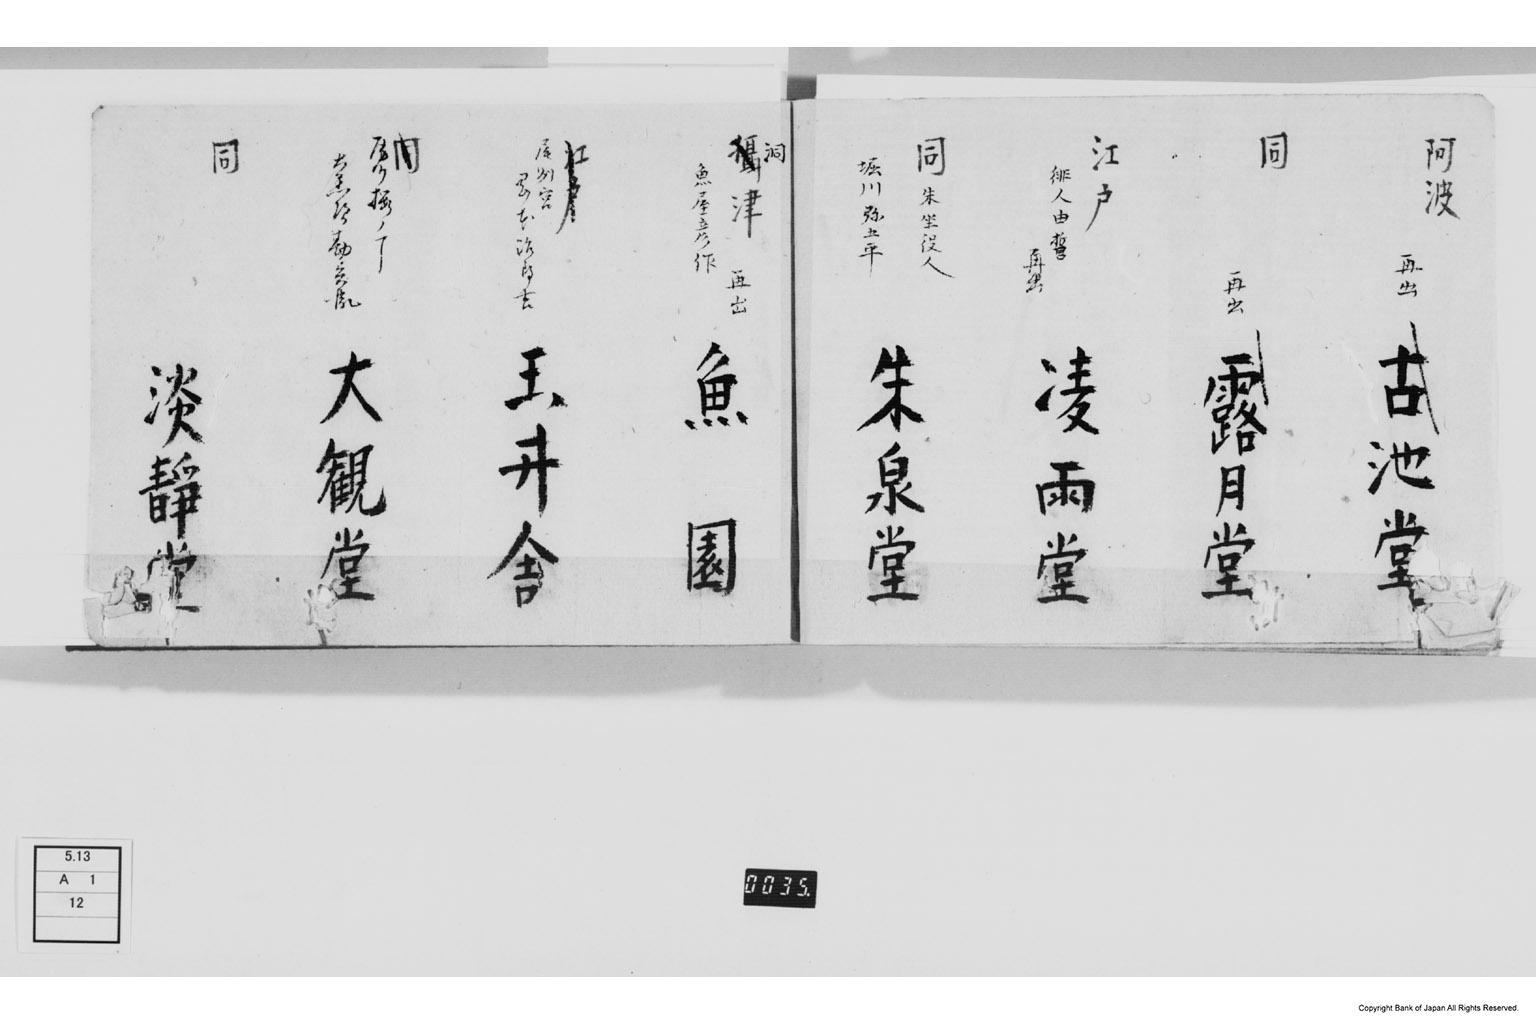 阿波
再出
古池堂
同
再出
露月堂
江戸
俳人由誓
再出
凌雨堂
同
朱坐役人
堀川弥五平
朱泉堂
洞
摂津
再出
魚屋彦作
魚園
江戸
尾州宮
玉井舎
同
大観堂
同
淡静堂
5.13
A 1
12
0035.
Copyright Bank of Japan All Rights Reserved.